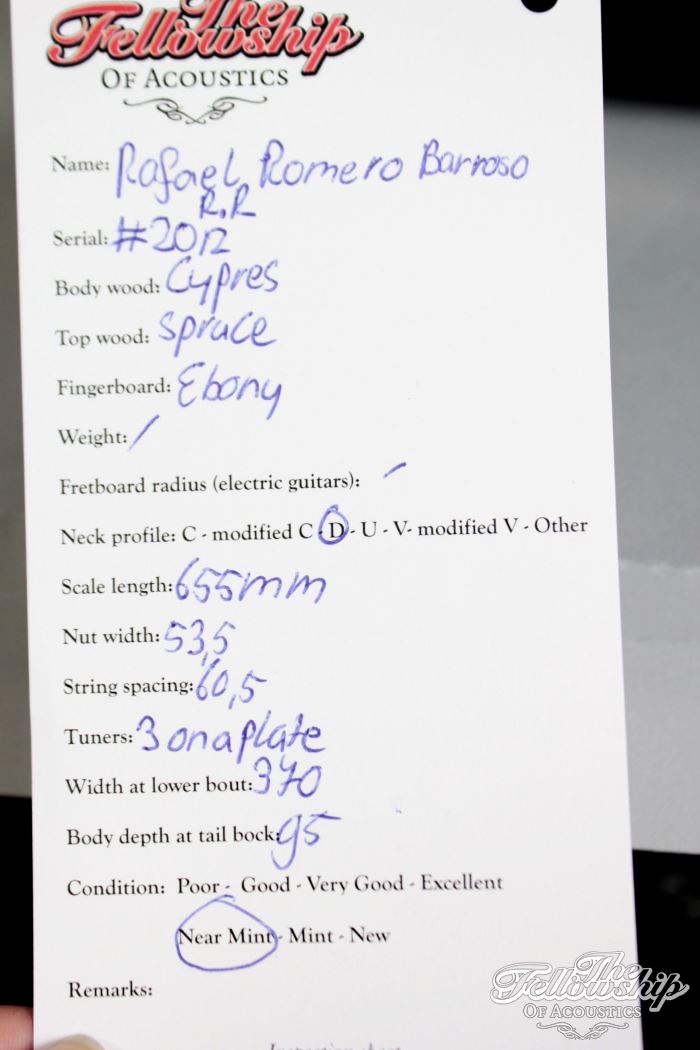 The
Fellowship
OF ACOUSTICS
Name: Rafael Romero Barroso
R.R
Serial: #2012
Body wood: Cypres
Top wood: Spruce
Fingerboard: Ebony
Weight: /
Fretboard radius (electric guitars): /
Neck profile: C - modified C - D - U - V- modified V - Other
Scale length: 655mm
Nut width: 53,5
String spacing: 60,5
Tuners: 3 on a plate
Width at lower bout: 370
Body depth at tail bock: 95
Condition: Poor - Good - Very Good - Excellent
Near Mint - Mint - New
Remarks:
The
Fellowship
OF ACOUSTICS